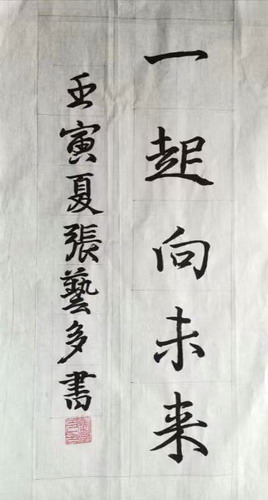 一起向未来
壬寅夏張藝多書